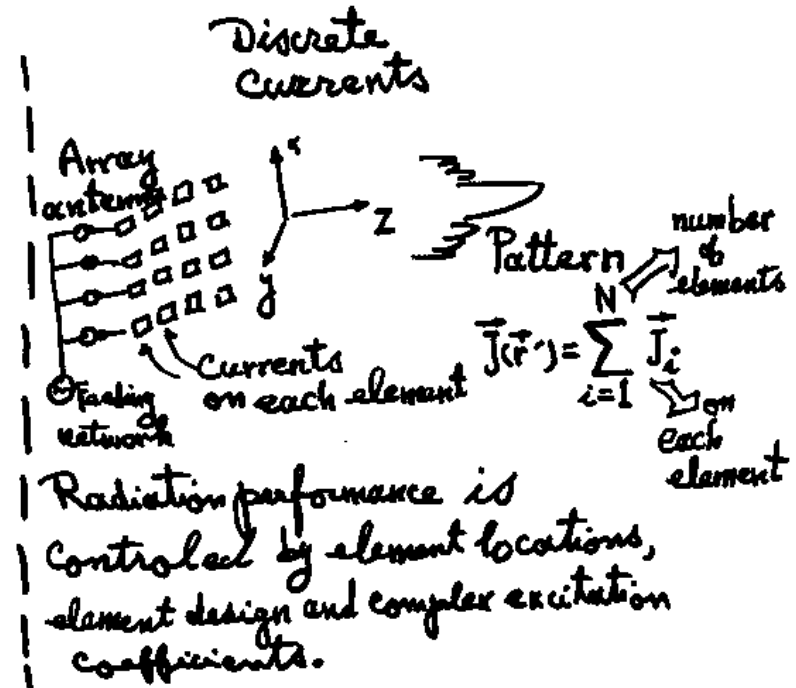 Discrete
Currents
Array
antenna
x
Z
y
Pattern
number
of
elements
N
J⃗(r⃗')= Σ J⃗i
i=1
on
each
element
Currents
on each element
Feeding
network
Radiation performance is
Controled by element locations,
element design and complex excitation
coefficients.